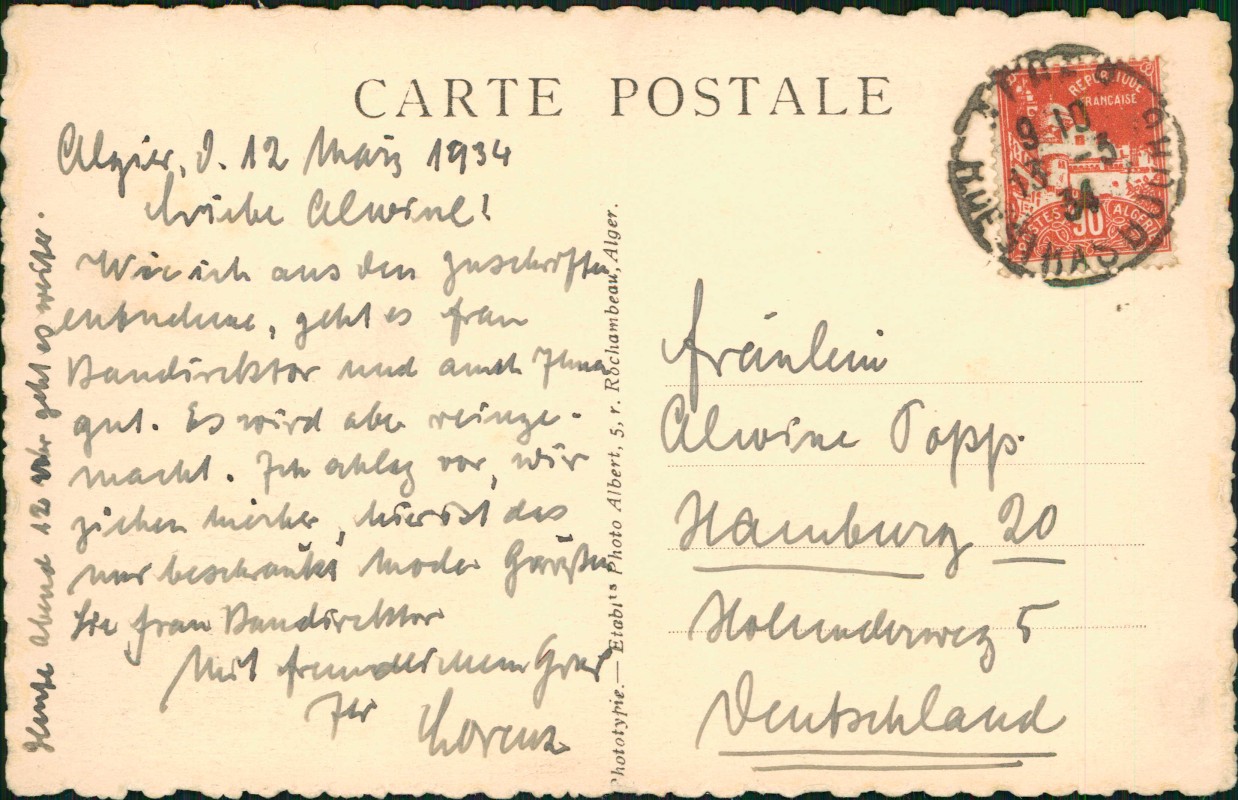 CARTE POSTALE
Algier, d. 12 März 1934
Liebe Alwine!
Wie ich aus den Zuschriften
entnehme, geht es Frau
Baudirektor und auch Ihnen
gut. Es wird aber reinge-
macht. Ich schlag vor, wir
ziehen hierher, hier ist das
nur beschränkt Mode. Grüßen
Sie Frau Baudirektor
Mit freundlichem Gruß
Ihr Lorenz
Heute Abend 12 Uhr geht es weiter.
Phototypie. — Etabl^ts Photo Albert, 5, r. Rochambeau, Alger.
RÉPUBLIQUE
FRANÇAISE
POSTES 50 ALGERIE
9 10
13 -3
34
Fräulein
Alwine Popp.
Hamburg 20
Holunderweg 5
Deutschland